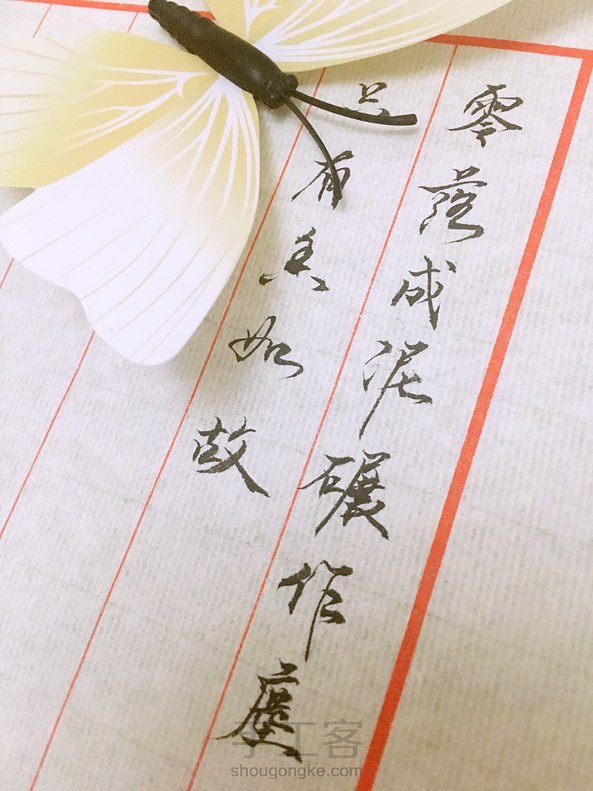 零落成泥碾作塵
只有香如故
手工客
shougongke.com